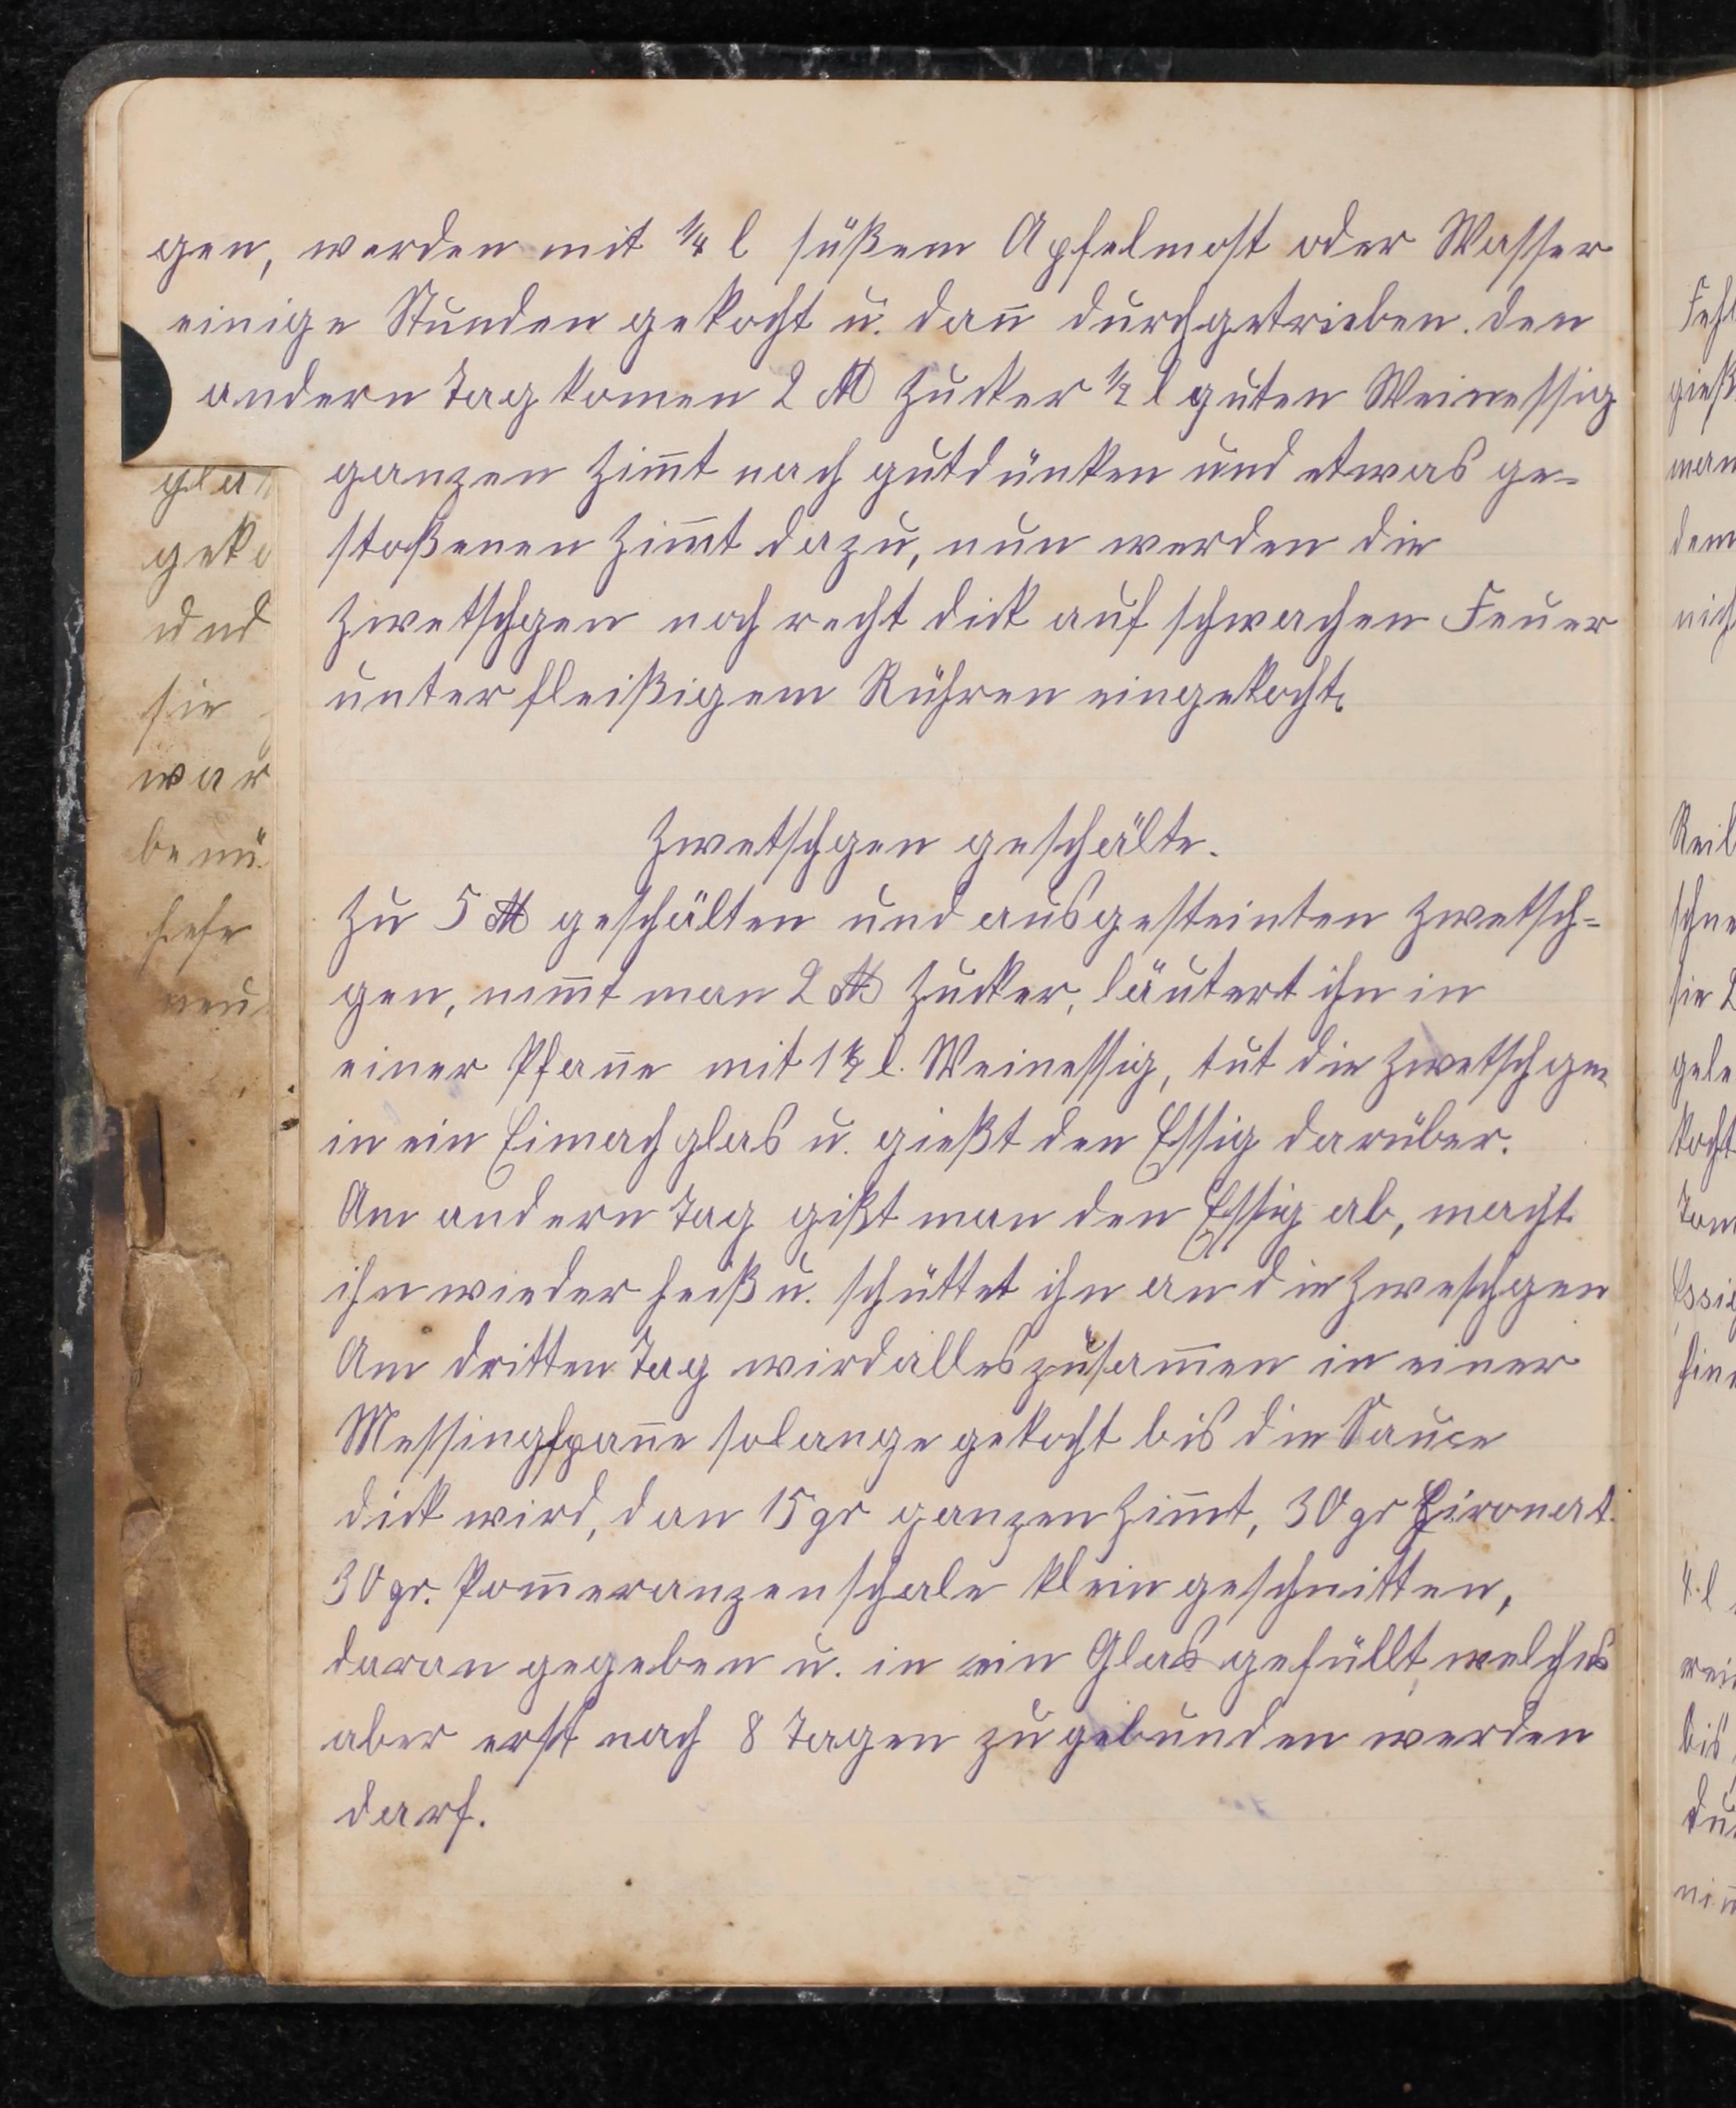 gen, werden mit ¼ l süßem Apfelmost oder Wasser
einige Stunden gekocht u. dan̄ durchgetrieben. den
andern Tag komen 2 ℔ Zucker ½ l guten Weinessig
ganzen Zim̄t nach gutdünken und etwas ge-
stoßenen Zim̄t dazu, nun werden die
Zwetschgen noch recht dick auf schwachen Feuer
unter fleißigem Rühren eingekocht.
Zwetschgen geschälte.
Zu 5 ℔ geschälten und ausgesteinten Zwetsch-
gen, nim̄t man 2 ℔ Zucker, läutert ihn in
einer Pfan̄e mit 1½ l. Weinessig, tut die Zwetschgen
in ein Eimachglas u. gießt den Essig darüber.
Am andern Tag gißt man den Essig ab, macht
ihn wieder heiß u. schüttet ihn an die Zweschgen
Am dritten Tag wird alles zusam̄en in einer
Messingpfan̄e solange gekocht bis die Sauce
dick wird, dan 15 gr ganzen Zim̄t, 30 gr Zironat.
30 gr. Pom̄eranzenschale klein geschnitten,
daran gegeben u. in ein Glas gefüllt, welches
aber erst nach 8 Tagen zugebunden werden
darf.
glat
geko
und
sie
war
hefe
Fehl
gieß
man
dem
nich
Reib
schne
sie 2
gele
kocht
Tom
Essig
4 l
bis